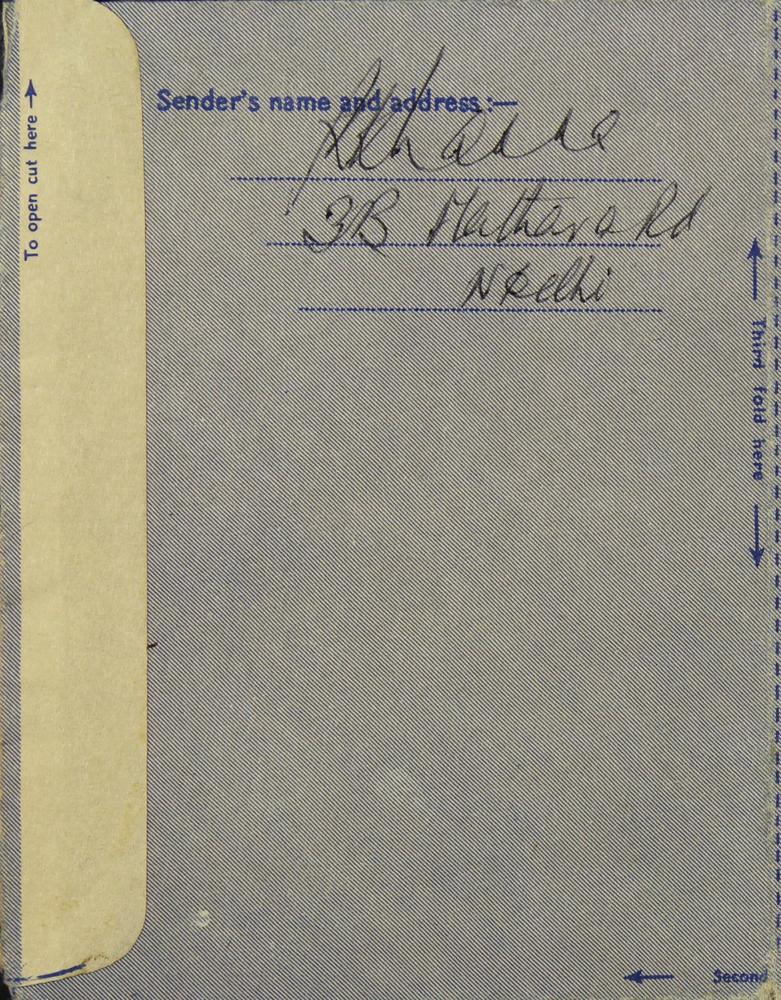 To open cut here
Sender's name and address :—
Khanna
3B Mathura Rd
N Delhi
Third fold here
Second